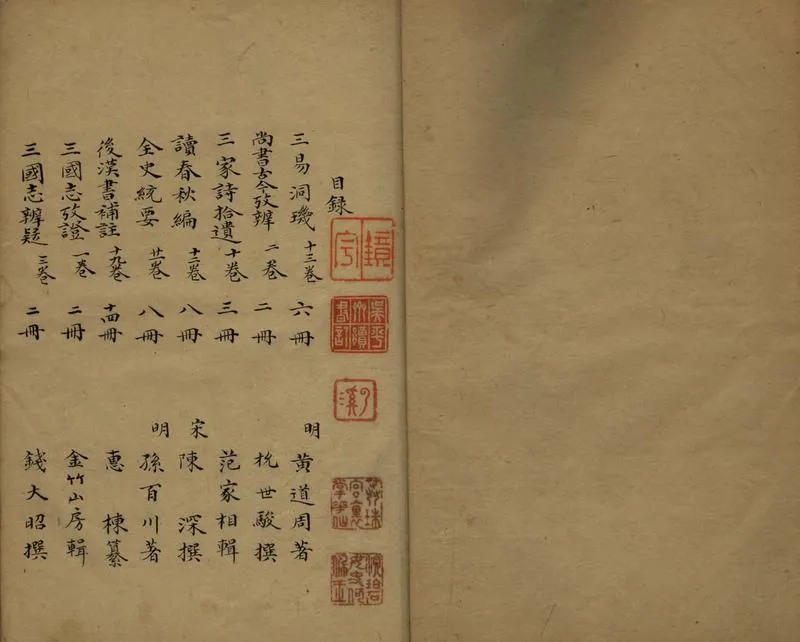 目録
三易洞璣 十三卷 六冊 明 黃道周著
尚書古今攷辨 二卷 二冊 杭世駿撰
三家詩拾遺 十卷 三冊 范家相輯
讀春秋編 十二卷 八冊 宋 陳深撰
全史統要 廿卷 八冊 明 孫百川著
後漢書補註 十九卷 十四冊 惠棟纂
三國志攷證 一卷 二冊 金竹山房輯
三國志辨疑 三卷 二冊 錢大昭撰